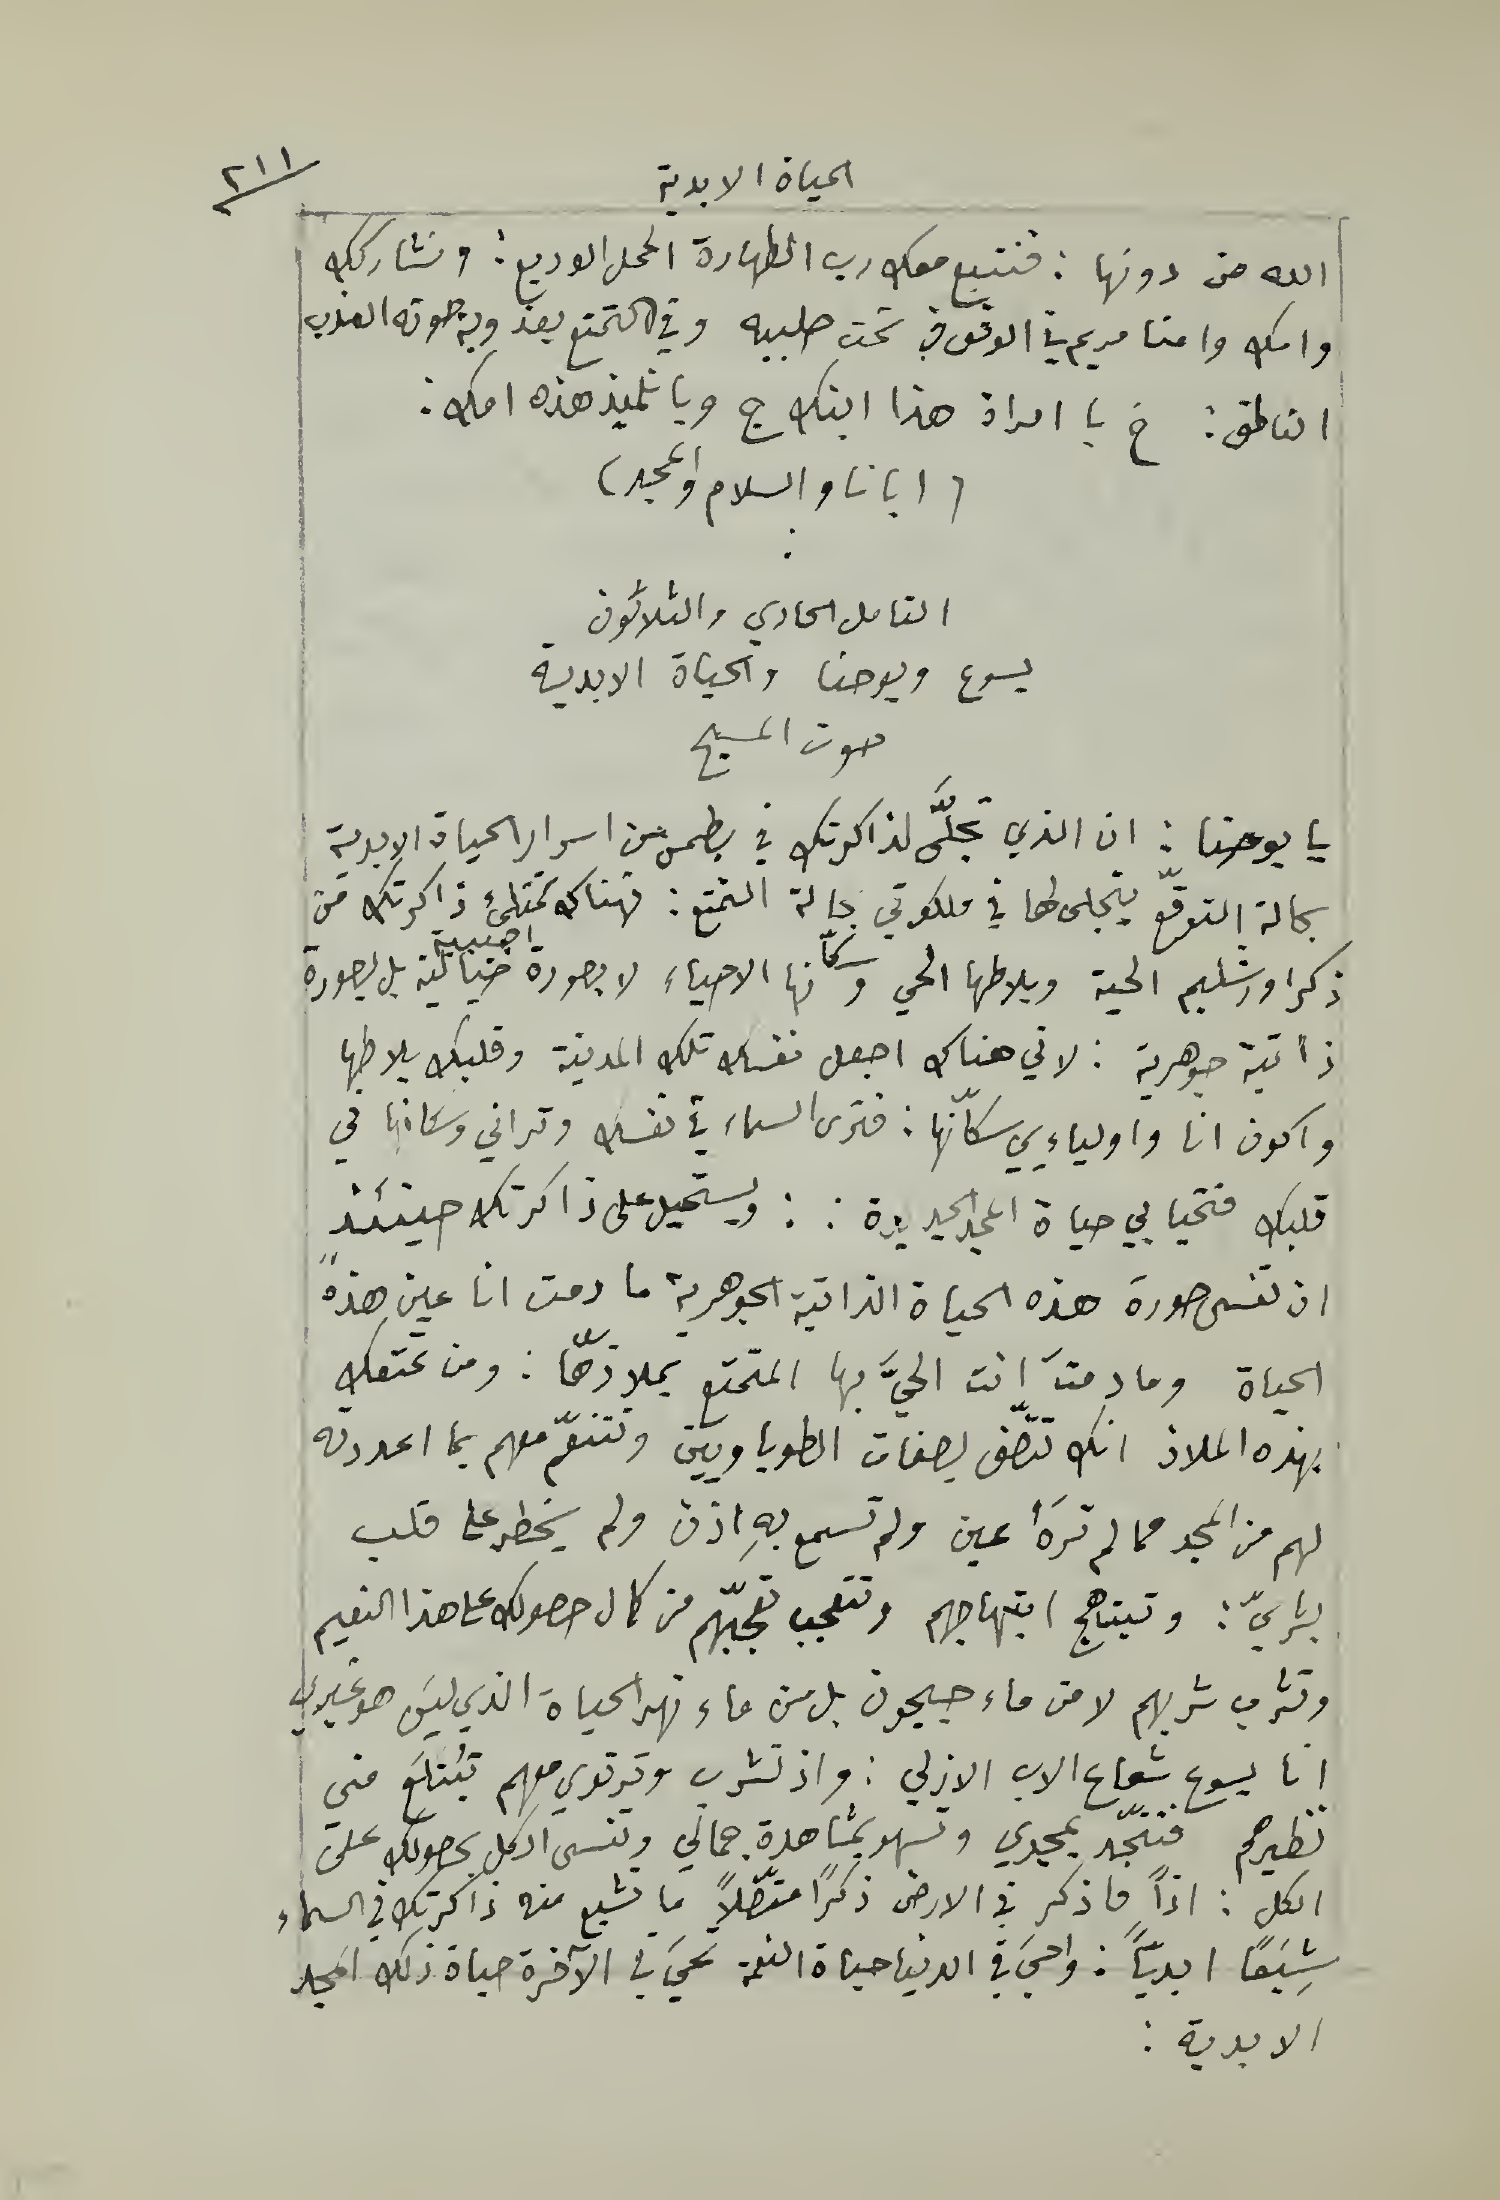 الحياة الابدية
٢١١
الله من دونها : فنتبع معك رب الطهارة الحمل الوديع : ونشاركك
وامك وامنا مريم في الوقوف تحت صليبه وفي التمتع بعذوبة صوته العذب
الناطق : خ يا امراة هذا ابنك ج ويا تلميذ هذه امك :
( ابانا والسلام والمجد )
التامل الحادي والثلاثون
يسوع ويوحنا والحياة الابدية
صوت المسيح
يا يوحنا : ان الذي تجلَّى لذاكرتك في بطمس من اسرار الحياة الابدية
بحالة التوقّع يتجلى لها في ملكوتي بحالة التمتع : فهناك تمتلئ ذاكرتك من
ذكر اورشليم الحية وبلاطها الحي وسكّانها الاحياء لا بصورة خيالية اجنبية بل بصورة
ذاتية جوهرية : لاني هناك اجعل نفسك تلك المدينة وقلبك بلاطها
واكون انا واوليايي سكّانها : فترى السماء في نفسك وتراني وسكانها في
قلبك فتحيا بي حياة المجد الجديدة : : ويستحيل على ذاكرتك حينئذ
ان تنسى صورة هذه الحياة الذاتية الجوهرية ما دمت انا عين هذه
الحياة وما دمتَ انت الحيَّ بها المتمتع بملاذّها : ومن تمتعك
بهذه الملاذ انك تتّصف بصفات الطوباويين وتتنعّم معهم بما اعددته
لهم من المجد مما لم ترَهُ عين ولم تسمع بهِ اذن ولم يخطر على قلب
بشريّ : وتبتهج ابتهاجهم وتتعجب تعجّبهم من كمال حصولك على هذا النعيم
وتشرب شربهم لا من ماء جيحون بل من ماء نهر الحياة الذي ليس هو غيري
انا يسوع شعاع الاب الازلي : واذ تشرب وترتوي معهم تبتلَع مني
نظيرهم فتتمجّد بمجدي وتسهو بمشاهدة جمالي وتنسى الكل بحصولك على
الكل : اذاً فاذكر في الارض ذكرًا متّصلًا ما تشبع منه ذاكرتك في السماء
شِبَعًا ابديّاً : واحيَ في الدنيا حياة النعمة تحيَ في الآخرة حياة ذلك المجد
الابدية :